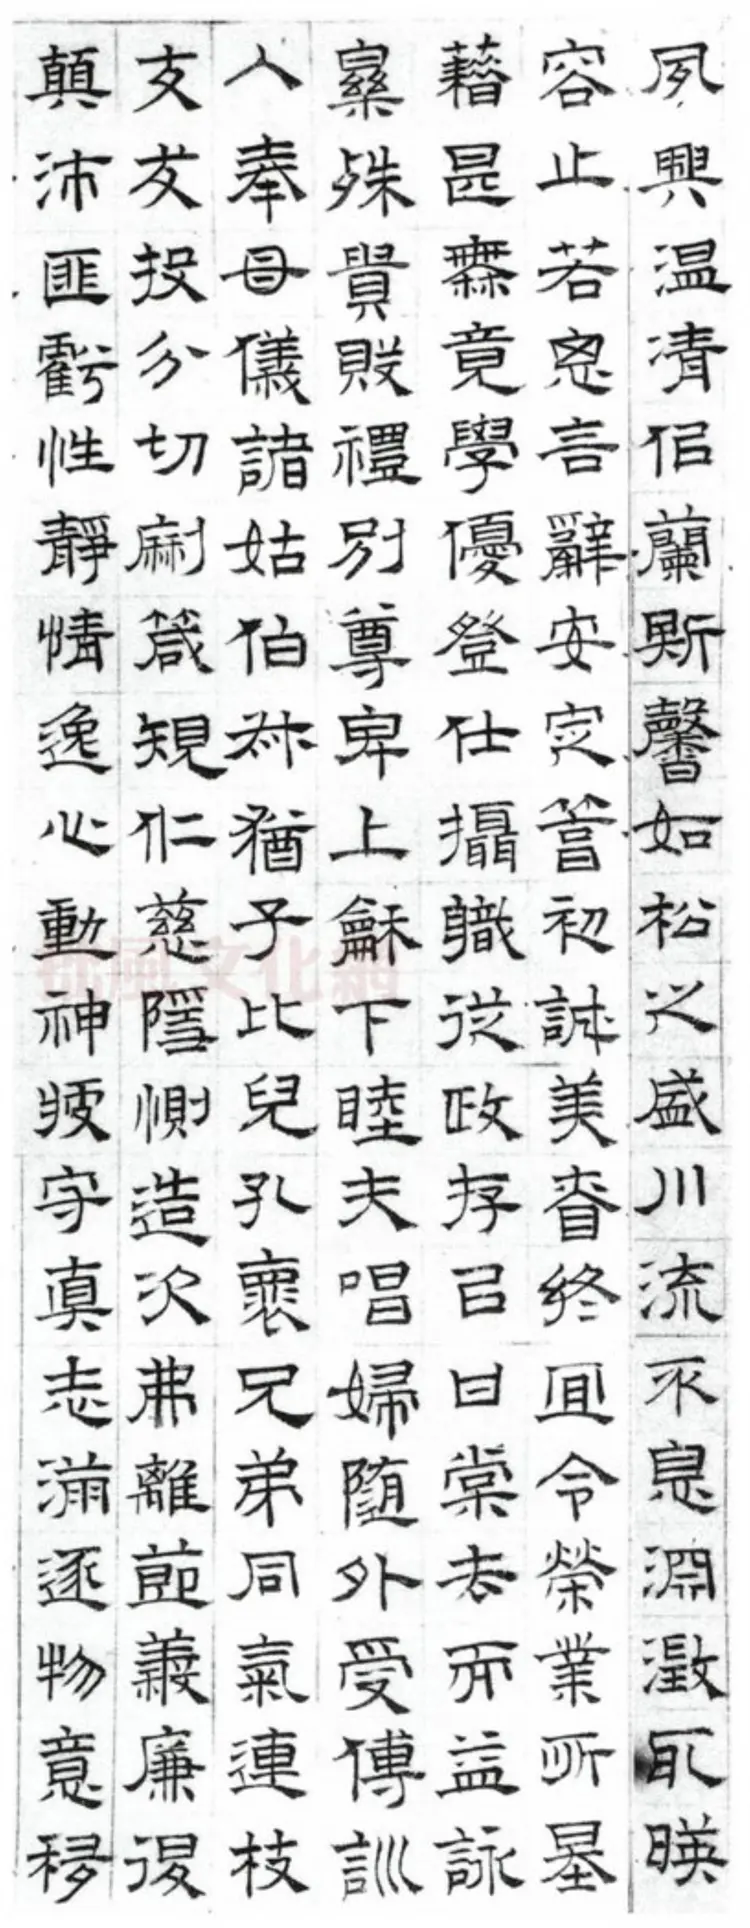 夙興温凊佀蘭斯馨如松之盛川流不息淵澂取暎
容止若思言辭安定篤初誠美昚終宜令榮業所基
藉甚無竟學優登仕攝職從政存㠯甘棠去而益詠
樂殊貴賤禮別尊卑上龢下睦夫唱婦隨外受傅訓
入奉母儀諸姑伯叔猶子比兒孔褱兄弟同氣連枝
交友投分切劘箴規仁慈隱惻造次弗離節義廉退
顛沛匪虧性靜情逸心動神疲守真志滿逐物意移